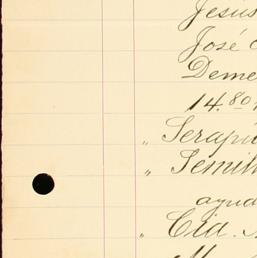 Jesús
José
Deme
14.80
" Serapi
" Semil
ayud
" Cid.